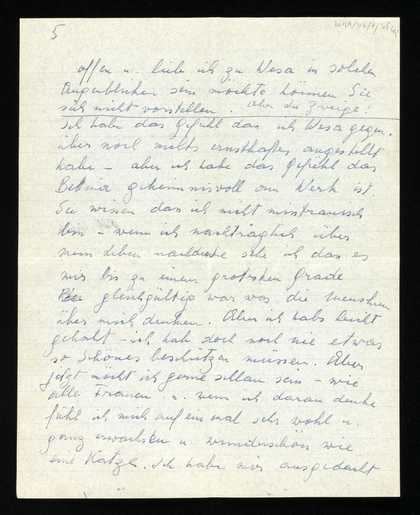 5
offen u. lieb ich zu Wesa in solchen
Augenblicken sein möchte können Sie
sich nicht vorstellen. Aber ich zweige.
Ich habe das Gefühl das ich Wesa gegen-
über noch nichts ernsthaftes angestellt
habe – aber ich habe das Gefühl das
geheimnisvoll am Werk ist.
Sie wissen das ich nicht misstrauisch
bin – wenn ich nachträglich über
mein Leben nachdenke sehe ich das es
mir bis zu einem grotesken Grade
gleichgültig war was die Menschen
über mich denken. Aber ich habs leicht
gehabt – ich hab doch noch nie etwas
so schönes beschützen müssen. Aber
jetzt möcht ich gerne schlau sein – wie
alle Frauen u. wenn ich daran denke
fühl ich mich auf ein mal sehr wohl u.
ganz erwachsen u. wunderschön wie
eine Katze. Ich habe mir ausgedacht